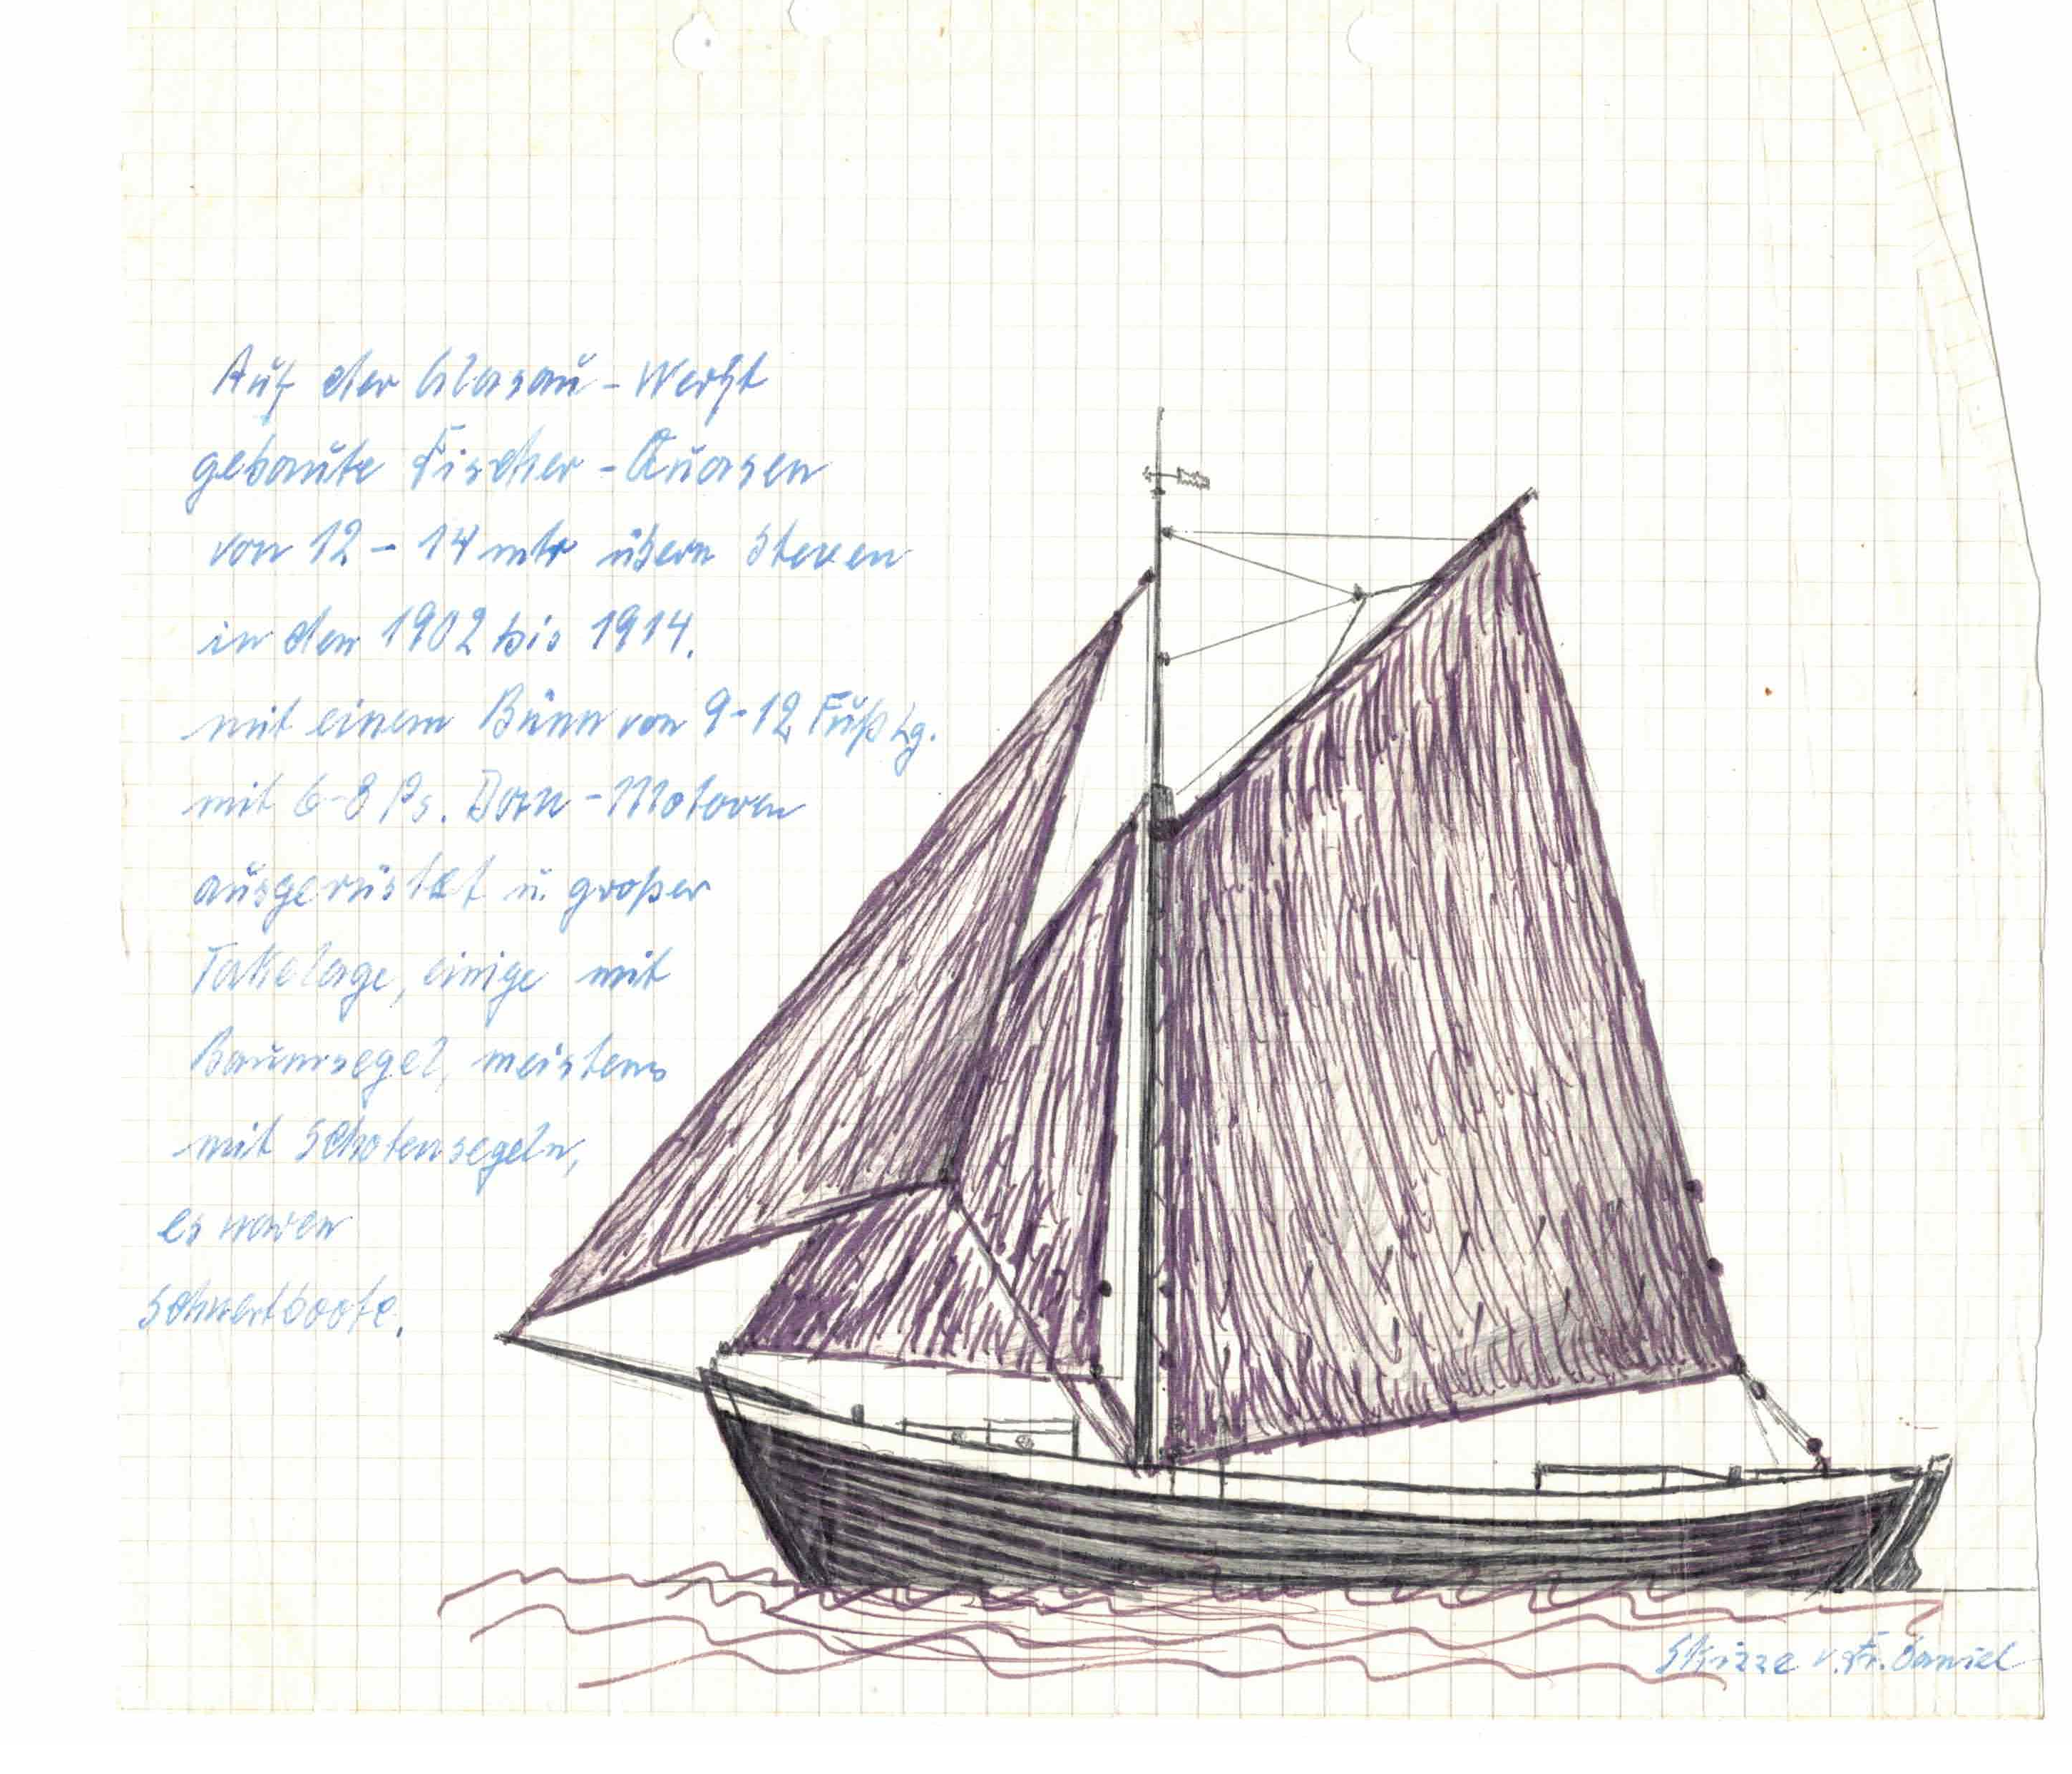 Auf der Glasau-Werft
gebaute Fischer-Quasen
von 12-14 mtr übern Steven
in den 1902 bis 1914.
mit einem Bünn von 9-12 Fuß Lg.
mit 6-8 Ps. Dorn-Motoren
ausgerüstet u. großer
Takelage, einige mit
Baumsegel, meistens
mit Schotensegeln,
es waren
Schwertboote.
Skizze v. Fr. Daniel